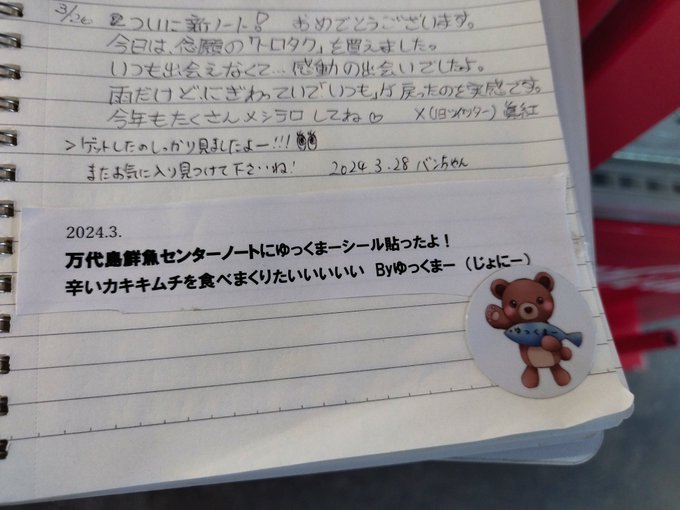 3/26 ついに新ノート! おめでとうございます。
今日は、念願の「トロタク」を買えました。
いつも出会えなくて…感動の出会いでしたよ。
雨だけど、にぎわっていて「いつも」が戻ったのを実感です。
今年もたくさんメシラロしてね♡ X(旧ツイッター) 眞紅
>ゲットしたのしっかり見ましたよー!!!
またお気に入り見つけて下さ‥ね! 2024.3.28 バンちゃん
2024.3.
万代島鮮魚センターノートにゆっくまーシール貼ったよ!
辛いカキキムチを食べまくりたいいいいい Byゆっくまー(じょにー)
ゆっくまー